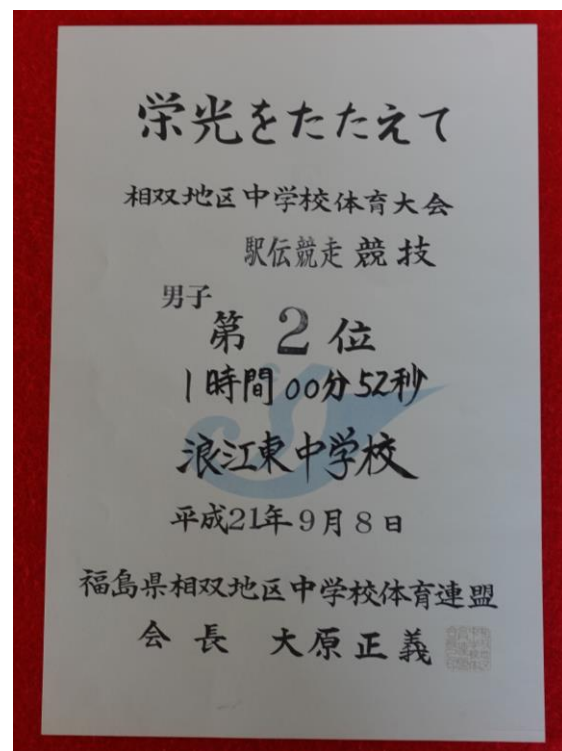 栄光をたたえて
相双地区中学校体育大会
駅伝競走 競技
男子
第 2 位
1時間00分52秒
浪江東中学校
平成21年9月8日
福島県相双地区中学校体育連盟
会長 大原正義